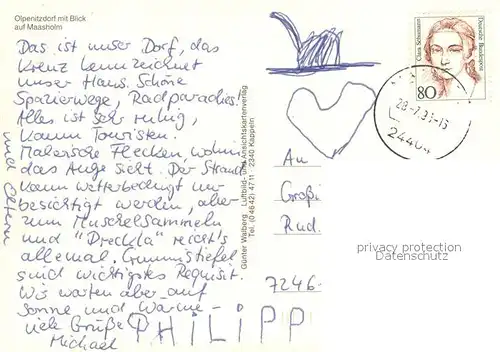 Olpenitzdorf mit Blick
auf Maasholm
Das ist unser Dorf, das
Kreuz kennzeichnet
unser Haus. Schöne
Spazierwege, Radparadies.
Alles ist sehr ruhig,
kaum Touristen.
Malerische Flecken, wohin
das Auge sieht. Der Strand
kann wetterbedingt nur
besichtigt werden, aber
zum Muschelsammeln
und "Dreckla" reicht's
allemal. Gummistiefel
sind wichtigstes Requisit.
Wir warten aber auf
Sonne und Wärme –
viele Grüße
Michael
PHILIPP
und Eltern
Günter Walberg · Luftbild- und Ansichtskartenverlag
Tel. (0 46 42) 47 11 · 2340 Kappeln
Clara Schumann
Deutsche Bundespost
80
An
Großi
Rud.
7246
privacy protection
Datenschutz